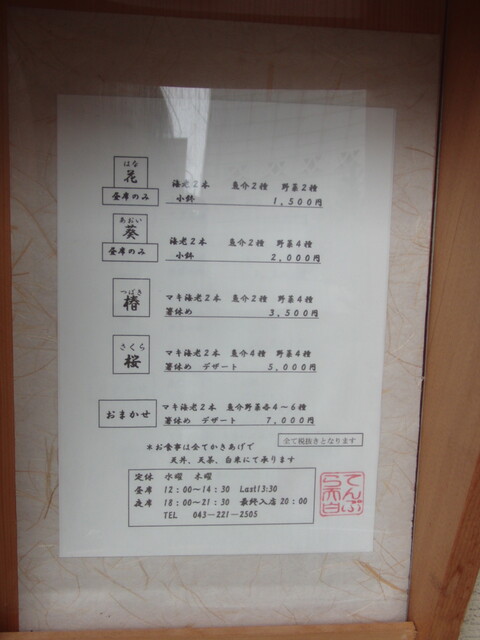 はな
花
昼席のみ
海老2本 魚介2種 野菜2種
小鉢 1,500円
あおい
葵
昼席のみ
海老2本 魚介2種 野菜4種
小鉢 2,000円
つばき
椿
マキ海老2本 魚介2種 野菜4種
箸休め 3,500円
さくら
桜
マキ海老2本 魚介4種 野菜4種
箸休め デザート 5,000円
おまかせ
マキ海老2本 魚介野菜各4～6種
箸休め デザート 7,000円
全て税抜きとなります
*お食事は全てかきあげで
天丼、天茶、白米にて承ります
定休 水曜 木曜
昼席 12:00～14:30 Last13:30
夜席 18:00～21:30 最終入店20:00
TEL 043-221-2505
てんぷ
ら天白